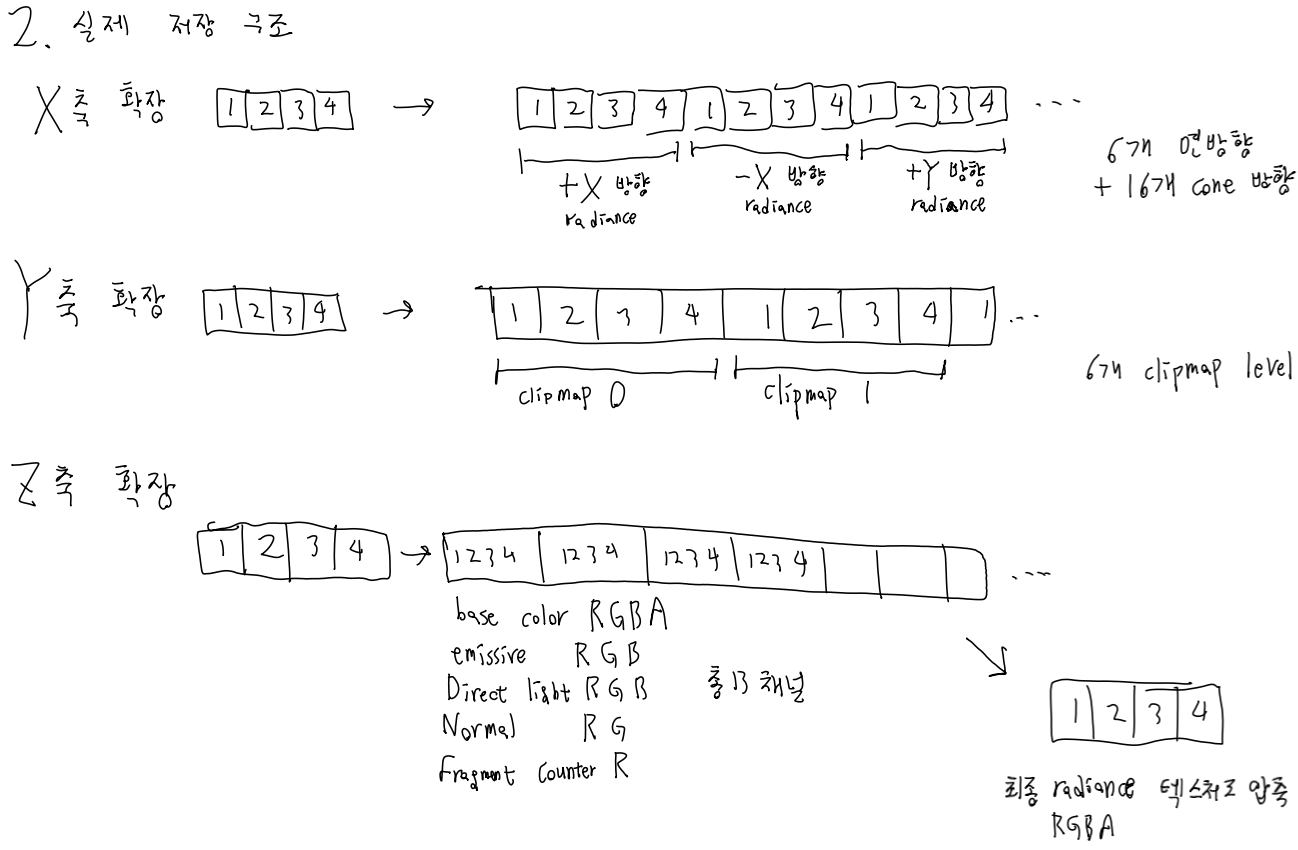 2. 실제 저장 구조
X축 확장 1 2 3 4 → 1 2 3 4 1 2 3 4 1 2 3 4 ....
+X 방향 -X 방향 +Y 방향
radiance radiance radiance
6개 면방향
+ 16개 cone 방향
Y축 확장 1 2 3 4 → 1 2 3 4 1 2 3 4 1 ...
clipmap 0 clipmap 1
6개 clipmap level
Z축 확장
1 2 3 4 → 1234 1234 1234 1234 ....
base color RGBA
emissive RGB
Direct light RGB 총 13 채널
Normal RG
Fragment Counter R
1 2 3 4
최종 radiance 텍스처로 압축
RGBA